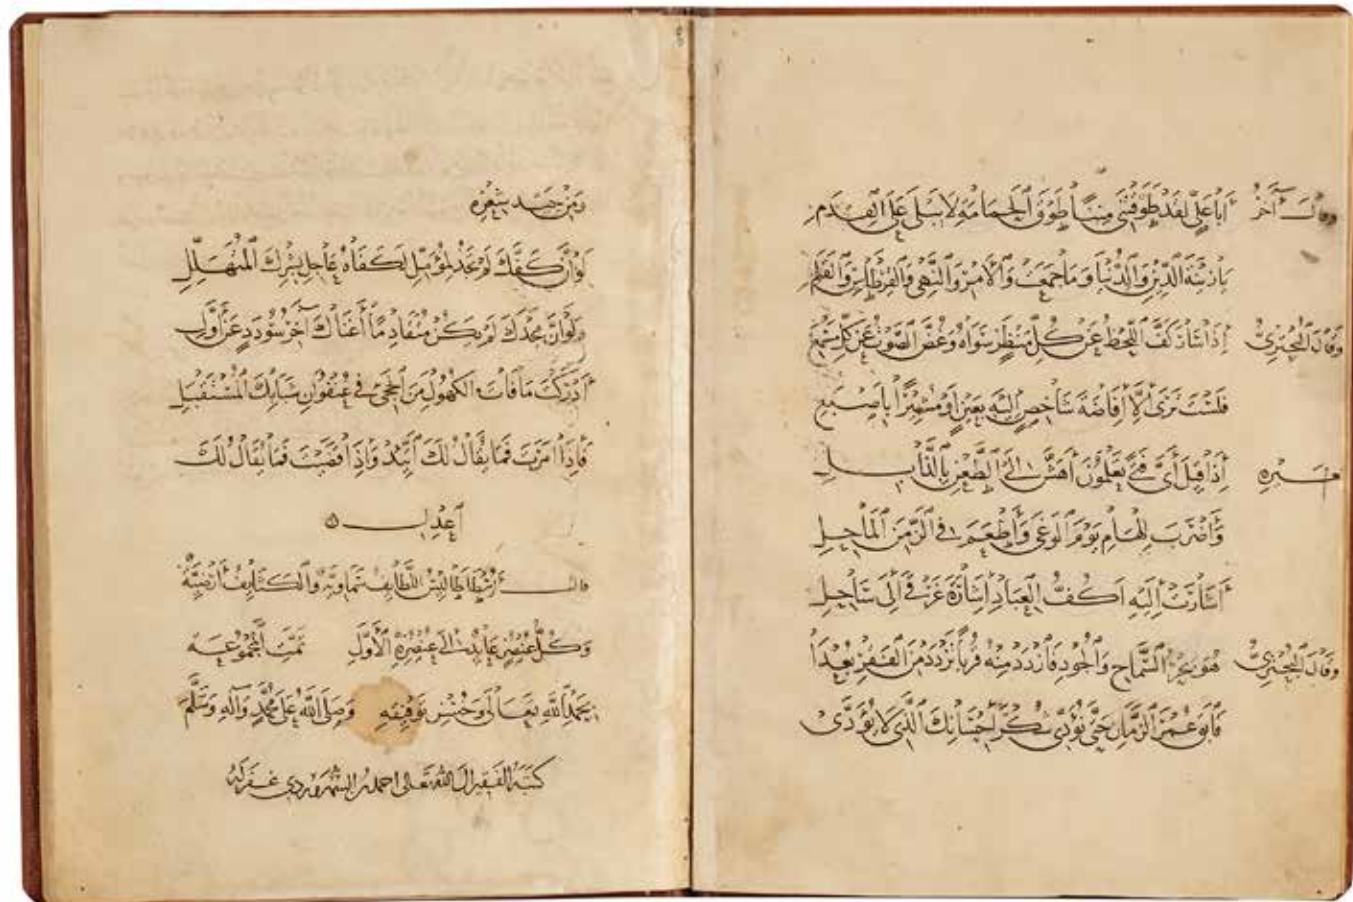 وقال آخر أبا علي لقد طوقتني مننا طوق الحمامة لا يبلى على القدم
يا زينة الدين والدنيا وما جمعت والأمر والنهي والقرطاس والقلم
وقال البحتري إذا شارك كف اللحظ عن كل منظر سواه وغض الصوت عن كل مسمع
فلست ترى إلا إفاضة شاخص إليه بعين أو مشيرا بإصبع
غيره إذا قيل أي فتى يعلمون أهش إلى الطعن بالذابل
وأضرب للهام يوم الوغى وأطعم في الزمن الماحل
أشارت إليه أكف العباد إشارة غرقى إلى ساحل
وقال البحتري هو بحر السماح والجود فازدد منه قربا تزدد من الفقر بعدا
فابق عمر الزمان حتى نؤدي شكر إحسانك الذي لا يؤدى
ومن جيد شعره
لو أن كفك لم تجد لمؤمل لكفاه عاجل بشرك المتهلل
ولو أن مجدك لم يكن متقادما أغناك آخر سؤدد عن أول
أدركت ما فات الكهول من الحجى في عنفوان شبابك المستقبل
فإذا أمرت فما يقال لك اتئد وإذا قضيت فما يقال لك
اعدل ه
قال أرسطاطاليس اللطايف سماوية والكثايف أرضية
وكل عنصر عايد إلى عنصره الأول تمت المجموعة
بحمد الله تعالى وحسن توفيقه وصلى الله على محمد وآله وسلم
كتبه الفقير إلى الله تعالى احمد بن السهروردي غفر له